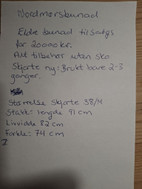 Nordmørsbunad
Ekte bunad til salgs
for 20000 kr.
Alt tilbehør uten sko
Skjorte ny. Brukt bare 2-3
ganger.
Størrelse skjorte 38/M
Stakk: lengde 91 cm
Livvidde 82 cm
Forkle: 74 cm